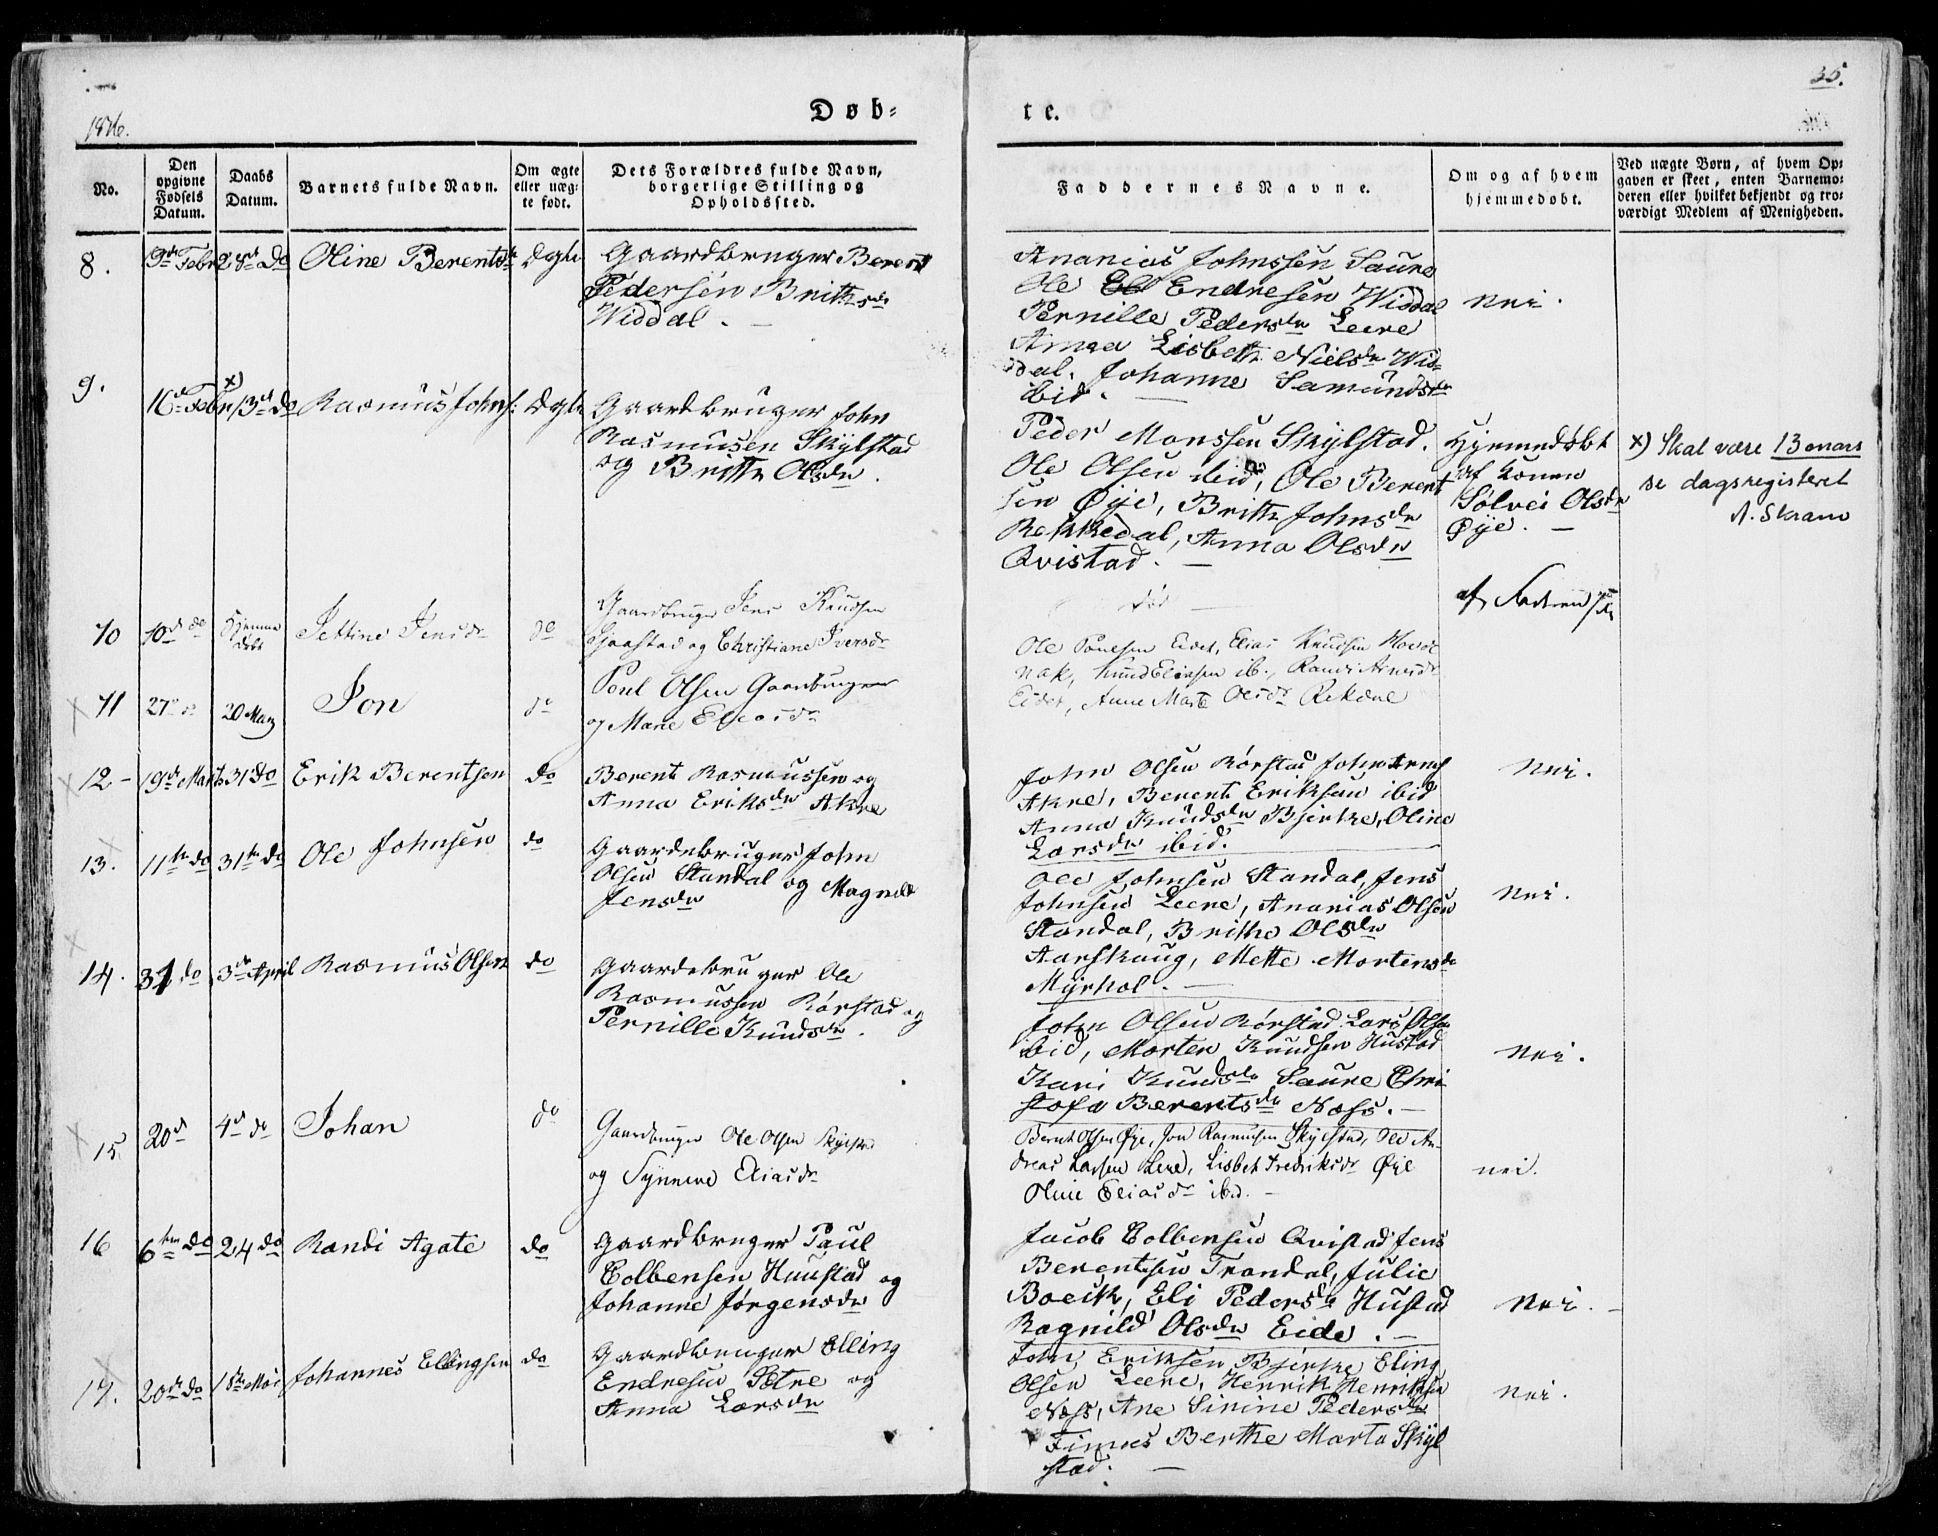 35.
Døb=
te.
No.
Den opgivne Fødsels Datum.
Daabs Datum.
Barnets fulde Navn.
Om ægte eller uæg= te født.
Dets Forældres fulde Navn, borgerlige Stilling og Opholdssted.
Faddernes Navne.
Om og af hvem hjemmedøbt.
Ved uægte Børn, af hvem Op= gaven er skeet, enten Barnemo= deren eller hvilket bekjendt og tro= værdigt Medlem af Menigheden.
8. 9de Febr Do Oline Berentsdr Ægte
Gaardbruger Berent
Pedersen Brithe
Widdal.
Ananias Johnssen Saure
Ole Endresen Widdal
Pernille Pedersdr Leere
Anna Lisbeth Nielsdr Wid=
dal. Johanne Samundsdr
ibid.
Nei.
9. 16de Febr x) 13de do Rasmus Johns: Ægte
Gaardbruger John
Rasmusen Skylstad
og Brithe Olsdr.
Peder Monssen Skylstad.
Ole Olsen ibid, Ole Berent
sen Øye, Brithe Johnsdr
Rekkedal, Anna Olsdr
Qvistad.
Hjemmedøbt
af Konen
Sølvei Olsdr
Øye.
x) Skal være 13 mars
se dagsregisteret
A. Skram
10 10de do Hjemme døbt Jettine Jensdr do
Gaardbruger Jens Knudsen
og Christiane Iversdr
død
af Faderen
11 27de do 20 Marz Jon do
Poul Olsen Gaardbruger
og Marie Eliasdr
Ole Poulsen Eidet, Elias Knudsen
nak, Knud Eliasen ib., Randi
Eidet, Anne Marte Olsdr Rekdal
12 19de Marts 31 do Erik Berentsen do
Berent Rasmussen og
Anna Eriksdr Akre
John Olsen Rørstad John
Akre, Berent Eriksen ibid
Anna Knudsdr Bjerke, Oline
Larsdr ibid.
Nei.
13. 11te do 31te do Ole Johnsen do
Gaardebruger John
Olsen Standal og Magnild
Jensdr
Ole Johnsen Standal, Jens
Johnsen Leere, Ananias Olsen
Standal, Brithe Olsdr
Aarskaug, Mette Mortensdr
Myrhol.
Nei.
14. 31 do 3de April Rasmus Olsen do
Gaardebruger Ole
Rasmussen Rørstad og
Pernille Knudsdr.
John Olsen Rørstad Lars Olsen
ibid, Morten Knudsen Hustad
Kari Knudsdr Saure Chri
stofa Berentsdr Næss.
Nei.
15 20de 4de do Johan do
Gaardbruger Ole Olsen Skylst:
og Synneve Eliasdr
Bernt Olsen Øye, Jon Rasmusen Skylstad, Ole An=
dreas Larsen Lere, Lisbet Fredriksdr Øye
Oline Eliasdr ibid.
nei.
16 6te do 24 do Randi Agate do
Gaardbruger Paul
Colbensen Huustad og
Johanne Jørgensdr
Jacob Colbensen Qvistad Jens
Berentsen Trandal, Julie
Boeck, Eli Pedersdr Hustad
Ragnild Olsdr Eide.
Nei.
17. 20de do 18de Mai Johannes Ellingsen do
Gaardbruger Elling
Endresen Sætre og
Anna Larsdr
John Eriksen Bjerke Eling
Olsen Leere, Henrik Henriksen
Næss, Ane Sirine Pedersdr
Finnes Berthe Marta Skyl
stad.
Nei.